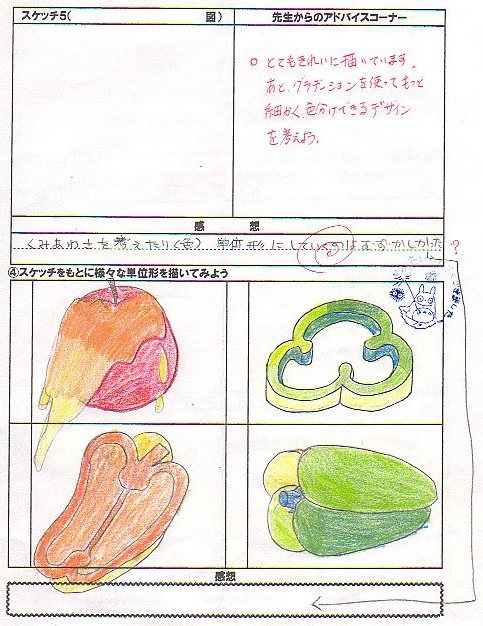 スケッチ5( 図)
先生からのアドバイスコーナー
○ とてもきれいに描いています。
あと、グラデーションを使ってもっと
細かく、色分けできるデザイン
を考えよう。
感 想
くみあわさを考えたり(色) 単位形にしていくのはむずかしかった
?
④スケッチをもとに様々な単位形を描いてみよう
感想